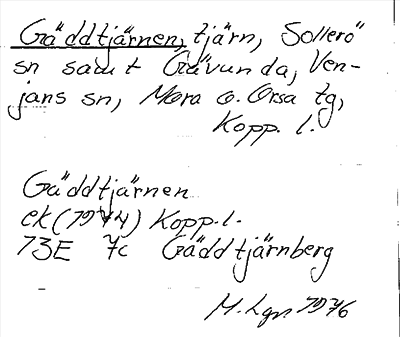 Gäddtjärnen, tjärn, Sollerö
sn samt Gävunda, Ven-
jans sn, Mora o. Orsa tg,
Kopp. l.
Gäddtjärnen
ek (1974) Kopp. l.
13E 7c Gäddtjärnberg
M. Lgn 1976